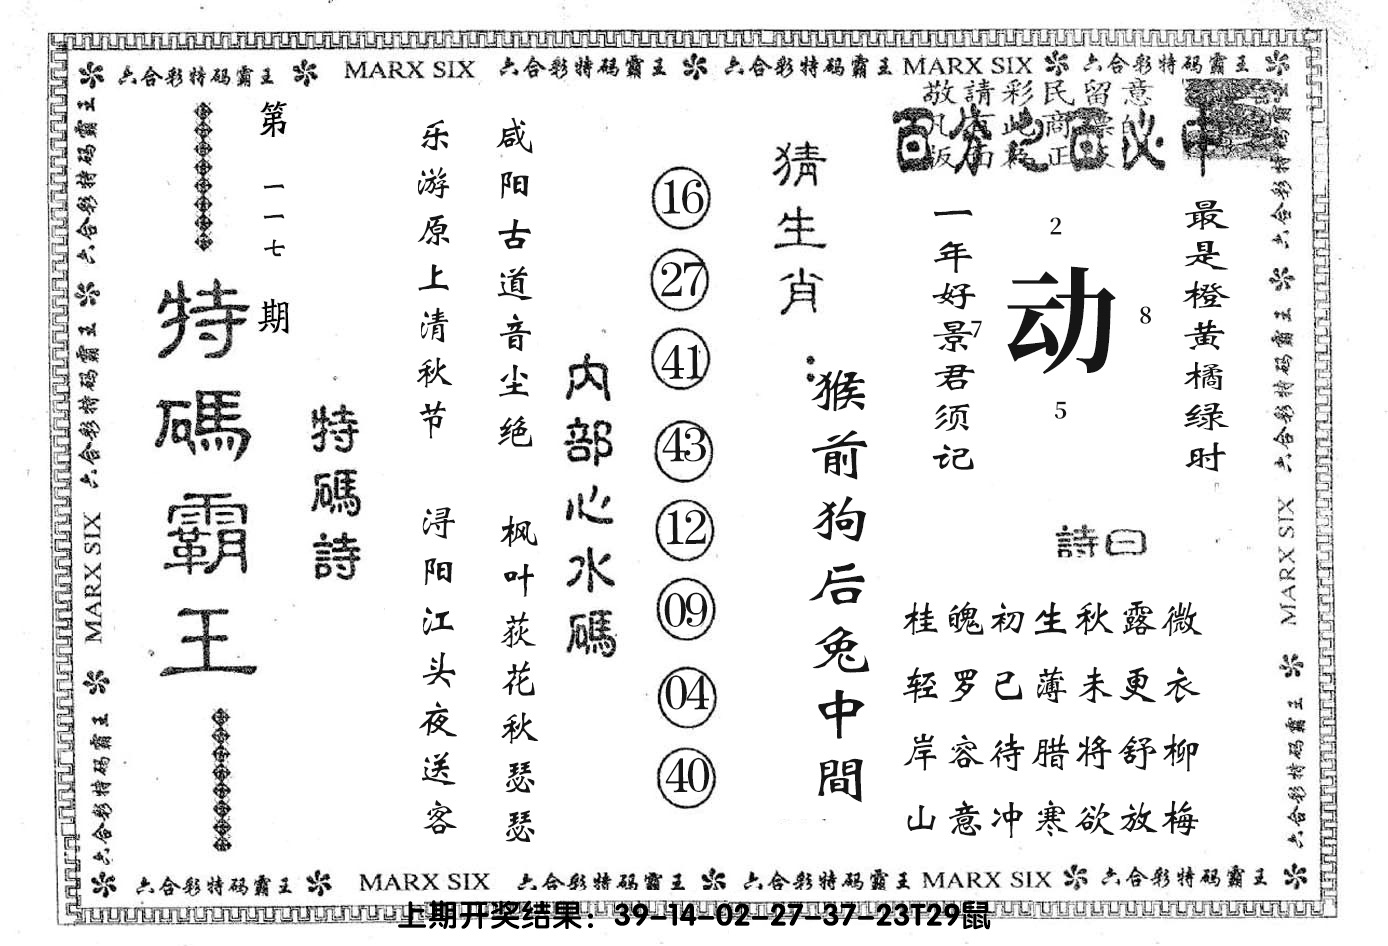 六合彩特码霸王 MARX SIX 六合彩特码霸王 六合彩特码霸王 MARX SIX 六合彩特码霸王
六合彩特码霸王
六合彩特码霸王
MARX SIX
六合彩特码霸王
第一一七期
特碼霸王
特碼詩
乐游原上清秋节
浔阳江头夜送客
咸阳古道音尘绝
枫叶荻花秋瑟瑟
内部心水碼
16
27
41
43
12
09
04
40
猜生肖:
猴前狗后兔中間
敬請彩民留意
百分之百必中
一年好景君须记
2
7
动
8
5
最是橙黄橘绿时
詩曰
桂魄初生秋露微
轻罗已薄未更衣
岸容待腊将舒柳
山意冲寒欲放梅
六合彩特码霸王
六合彩特码霸王
MARX SIX
六合彩特码霸王
六合彩特码霸王 MARX SIX 六合彩特码霸王 六合彩特码霸王 MARX SIX 六合彩特码霸王
上期开奖结果：39-14-02-27-37-23T29鼠